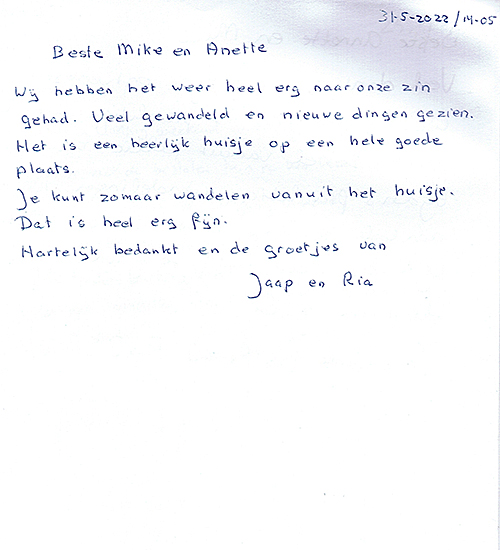 31-5-2022/14-05
Beste Mike en Anette
Wij hebben het weer heel erg naar onze zin
gehad. Veel gewandeld en nieuwe dingen gezien.
Het is een heerlijk huisje op een hele goede
plaats.
Je kunt zomaar wandelen vanuit het huisje.
Dat is heel erg fijn.
Hartelijk bedankt en de groetjes van
Jaap en Ria